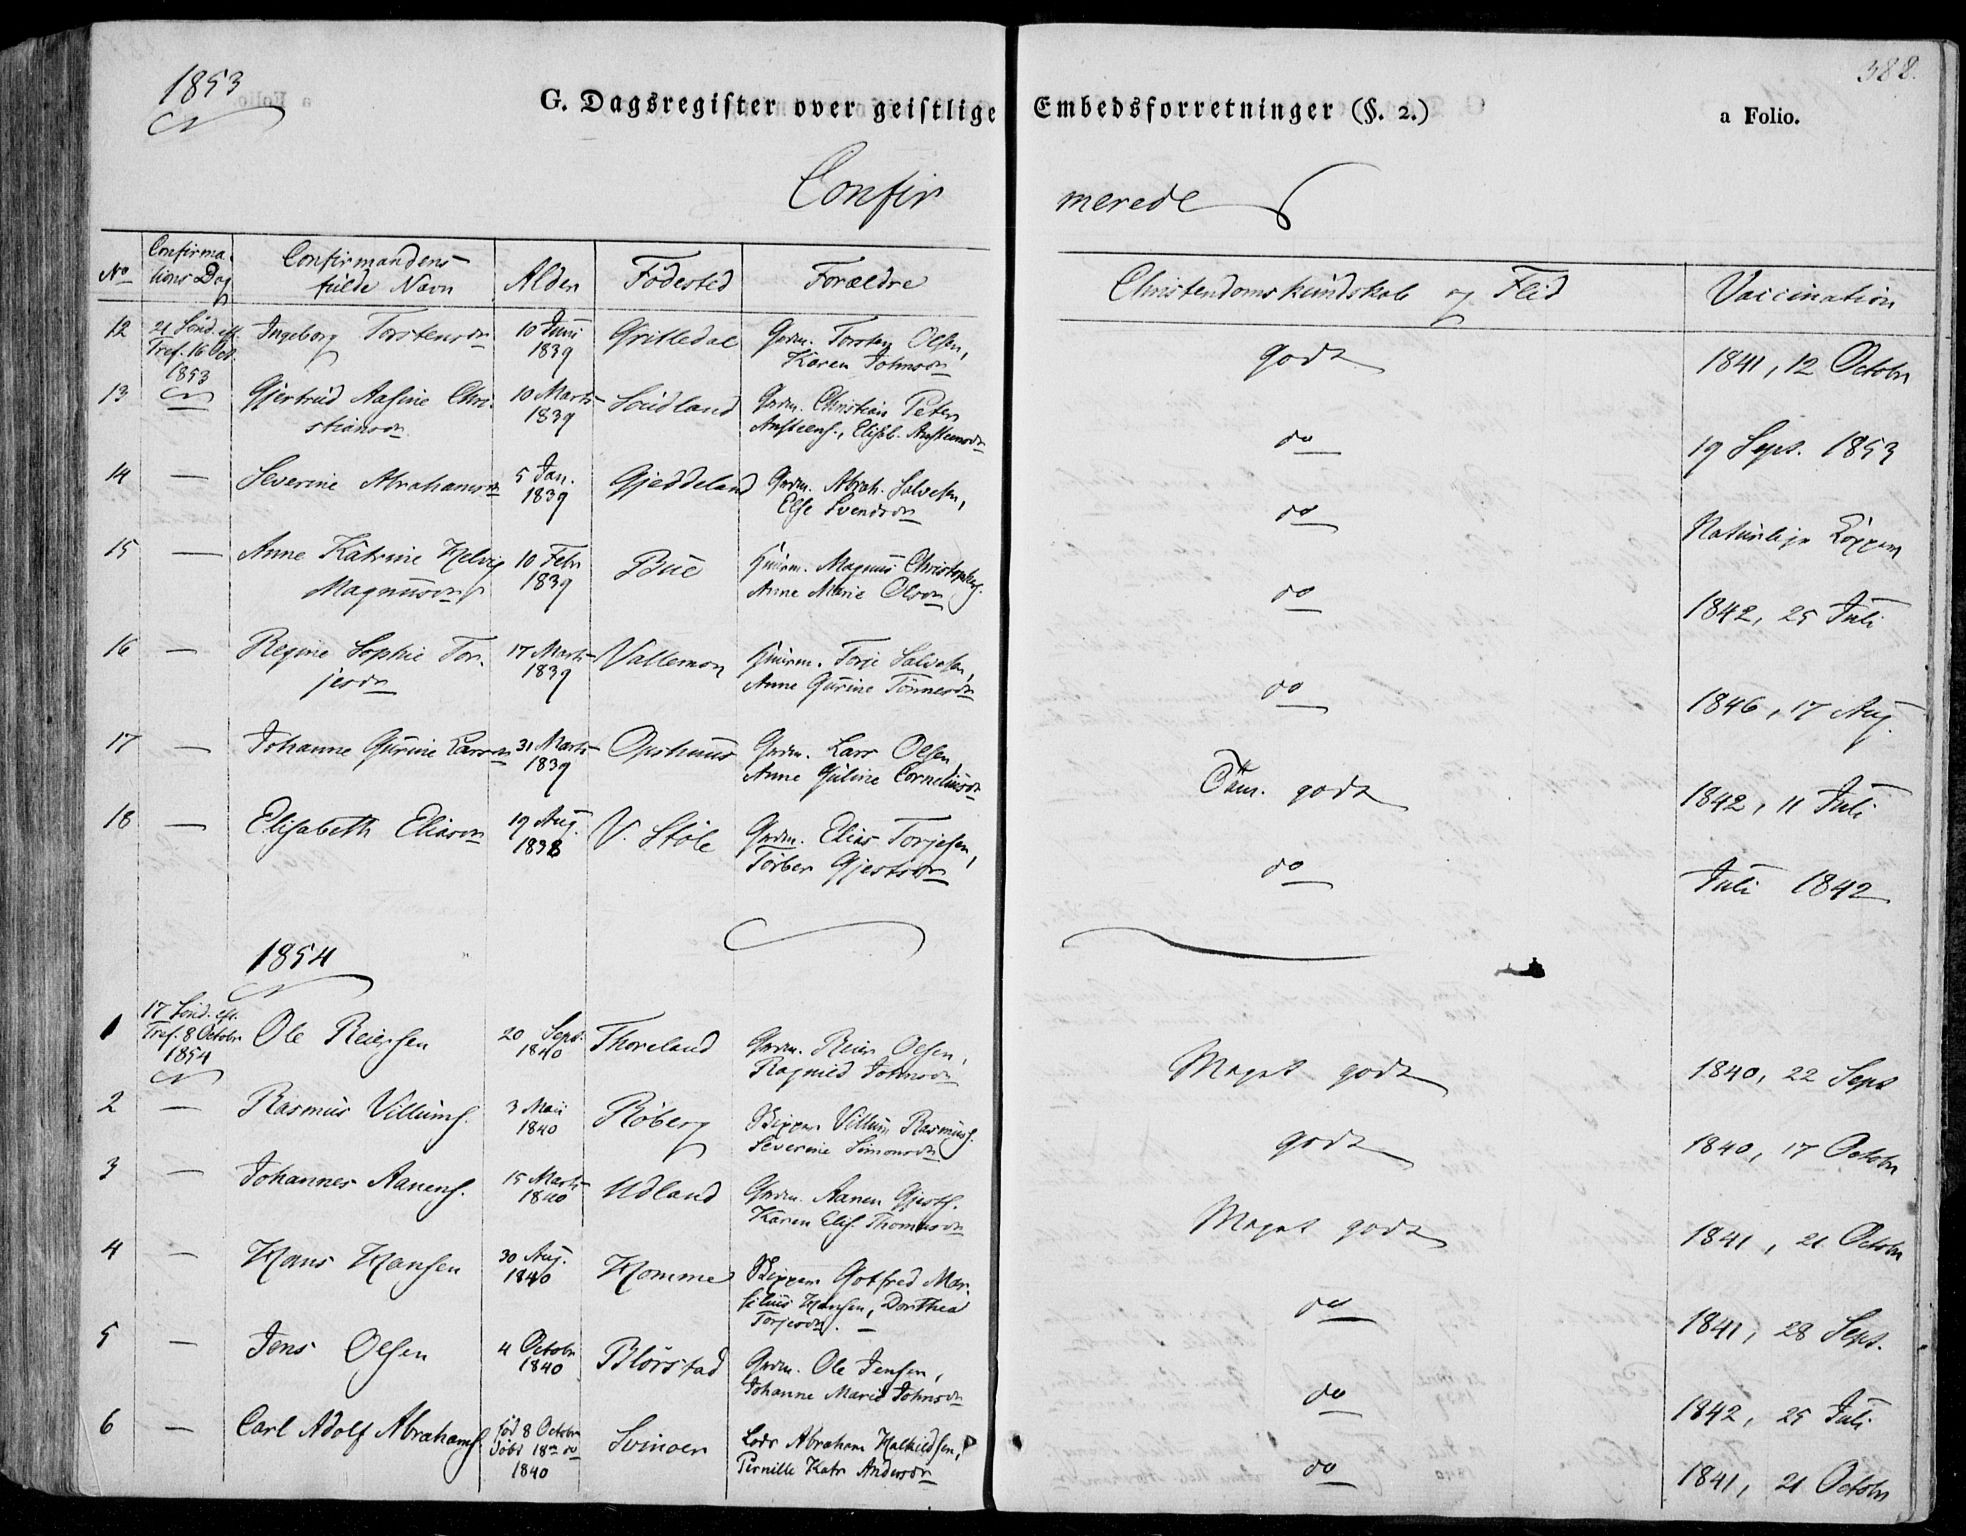 1853
388.
G. Dagsregister over geistlige Embedsforretninger (§. 2.) a Folio.
Confirmerede
No Confirmations Dag Confirmandens fulde Navn Alder Födested Forældre Christendoms Kundskab og Flid Vaccination
12 21 Sönd. eft. Tref. 16 Oct. 1853 Ingeborg Torstensdr 10 Juni 1839 Gritledal Grdm. Torsten Olsen, Karen Johnsdr godt 1841, 12 Octobr
13 Gjertrud Aasine Christiansdr 10 Marts 1839 Sudland Grdm. Christian Peter Anstens., Elisab. Anstensdr do 19 Sept. 1853
14 — Severine Abrahamsdr 5 Jan. 1839 Gjeddeland Grdm. Abrah. Salvesen, Else Svendsdr do Naturlige Kopper
15 — Anne Katrine Helvig Magnusdr 10 Febr 1839 Bue Huusm. Magnus Christophers. Anne Marie Olsdr do 1842, 25 Juli
16 — Regine Sophie Torjesdr 17 Marts 1839 Vallemon Huusm. Torje Salvesen, Anne Gurine Tönnesdr do 1846, 17 Aug.
17 — Johanne Gurine Larsdr 31 Marts 1839 Opshuus Grdm. Lars Olsen, Anne Guline Corneliusdr Tem. godt 1842, 11 Juli
18 — Elisabeth Eliasdr 19 Aug. 1838 V. Stöle Grdm. Elias Torjesen, Torber Gjestsdr do Juli 1842
1854
1 17 Sönd. eft. Tref. 8 Octobr 1854 Ole Reiersen 20 Sept. 1840 Thoreland Grdm. Reier Olsen, Ragnild Johnsdr Meget godt 1840, 22 Sept
2 — Rasmus Villums. 3 Mai 1840 Röberg Skipper Villum Rasmus. Severine Simonsdr godt 1840, 17 Octobr
3 — Johannes Aanens. 15 Marts 1840 Udland Grdm. Aanen Gjests. Karen Elis. Thomasdr Meget godt 1841, 21 Octobr
4 — Hans Hansen 30 Aug. 1840 Homme Skipper Gotfred Marsilius Hansen, Dorthea Torjesdr. — do 1841, 28 Sept.
5 — Jens Olsen 4 Octobr 1840 Blörstad Grdm. Ole Jensen, Johanne Marie Johnsdr do 1842, 25 Juli
6 — Carl Adolf Abrahams. föd 8 Octobr döbt 18de do 1840 Svinoer Lods Abraham Halkildsen, Pernille Katr Andersdr do 1841, 21 Octobr